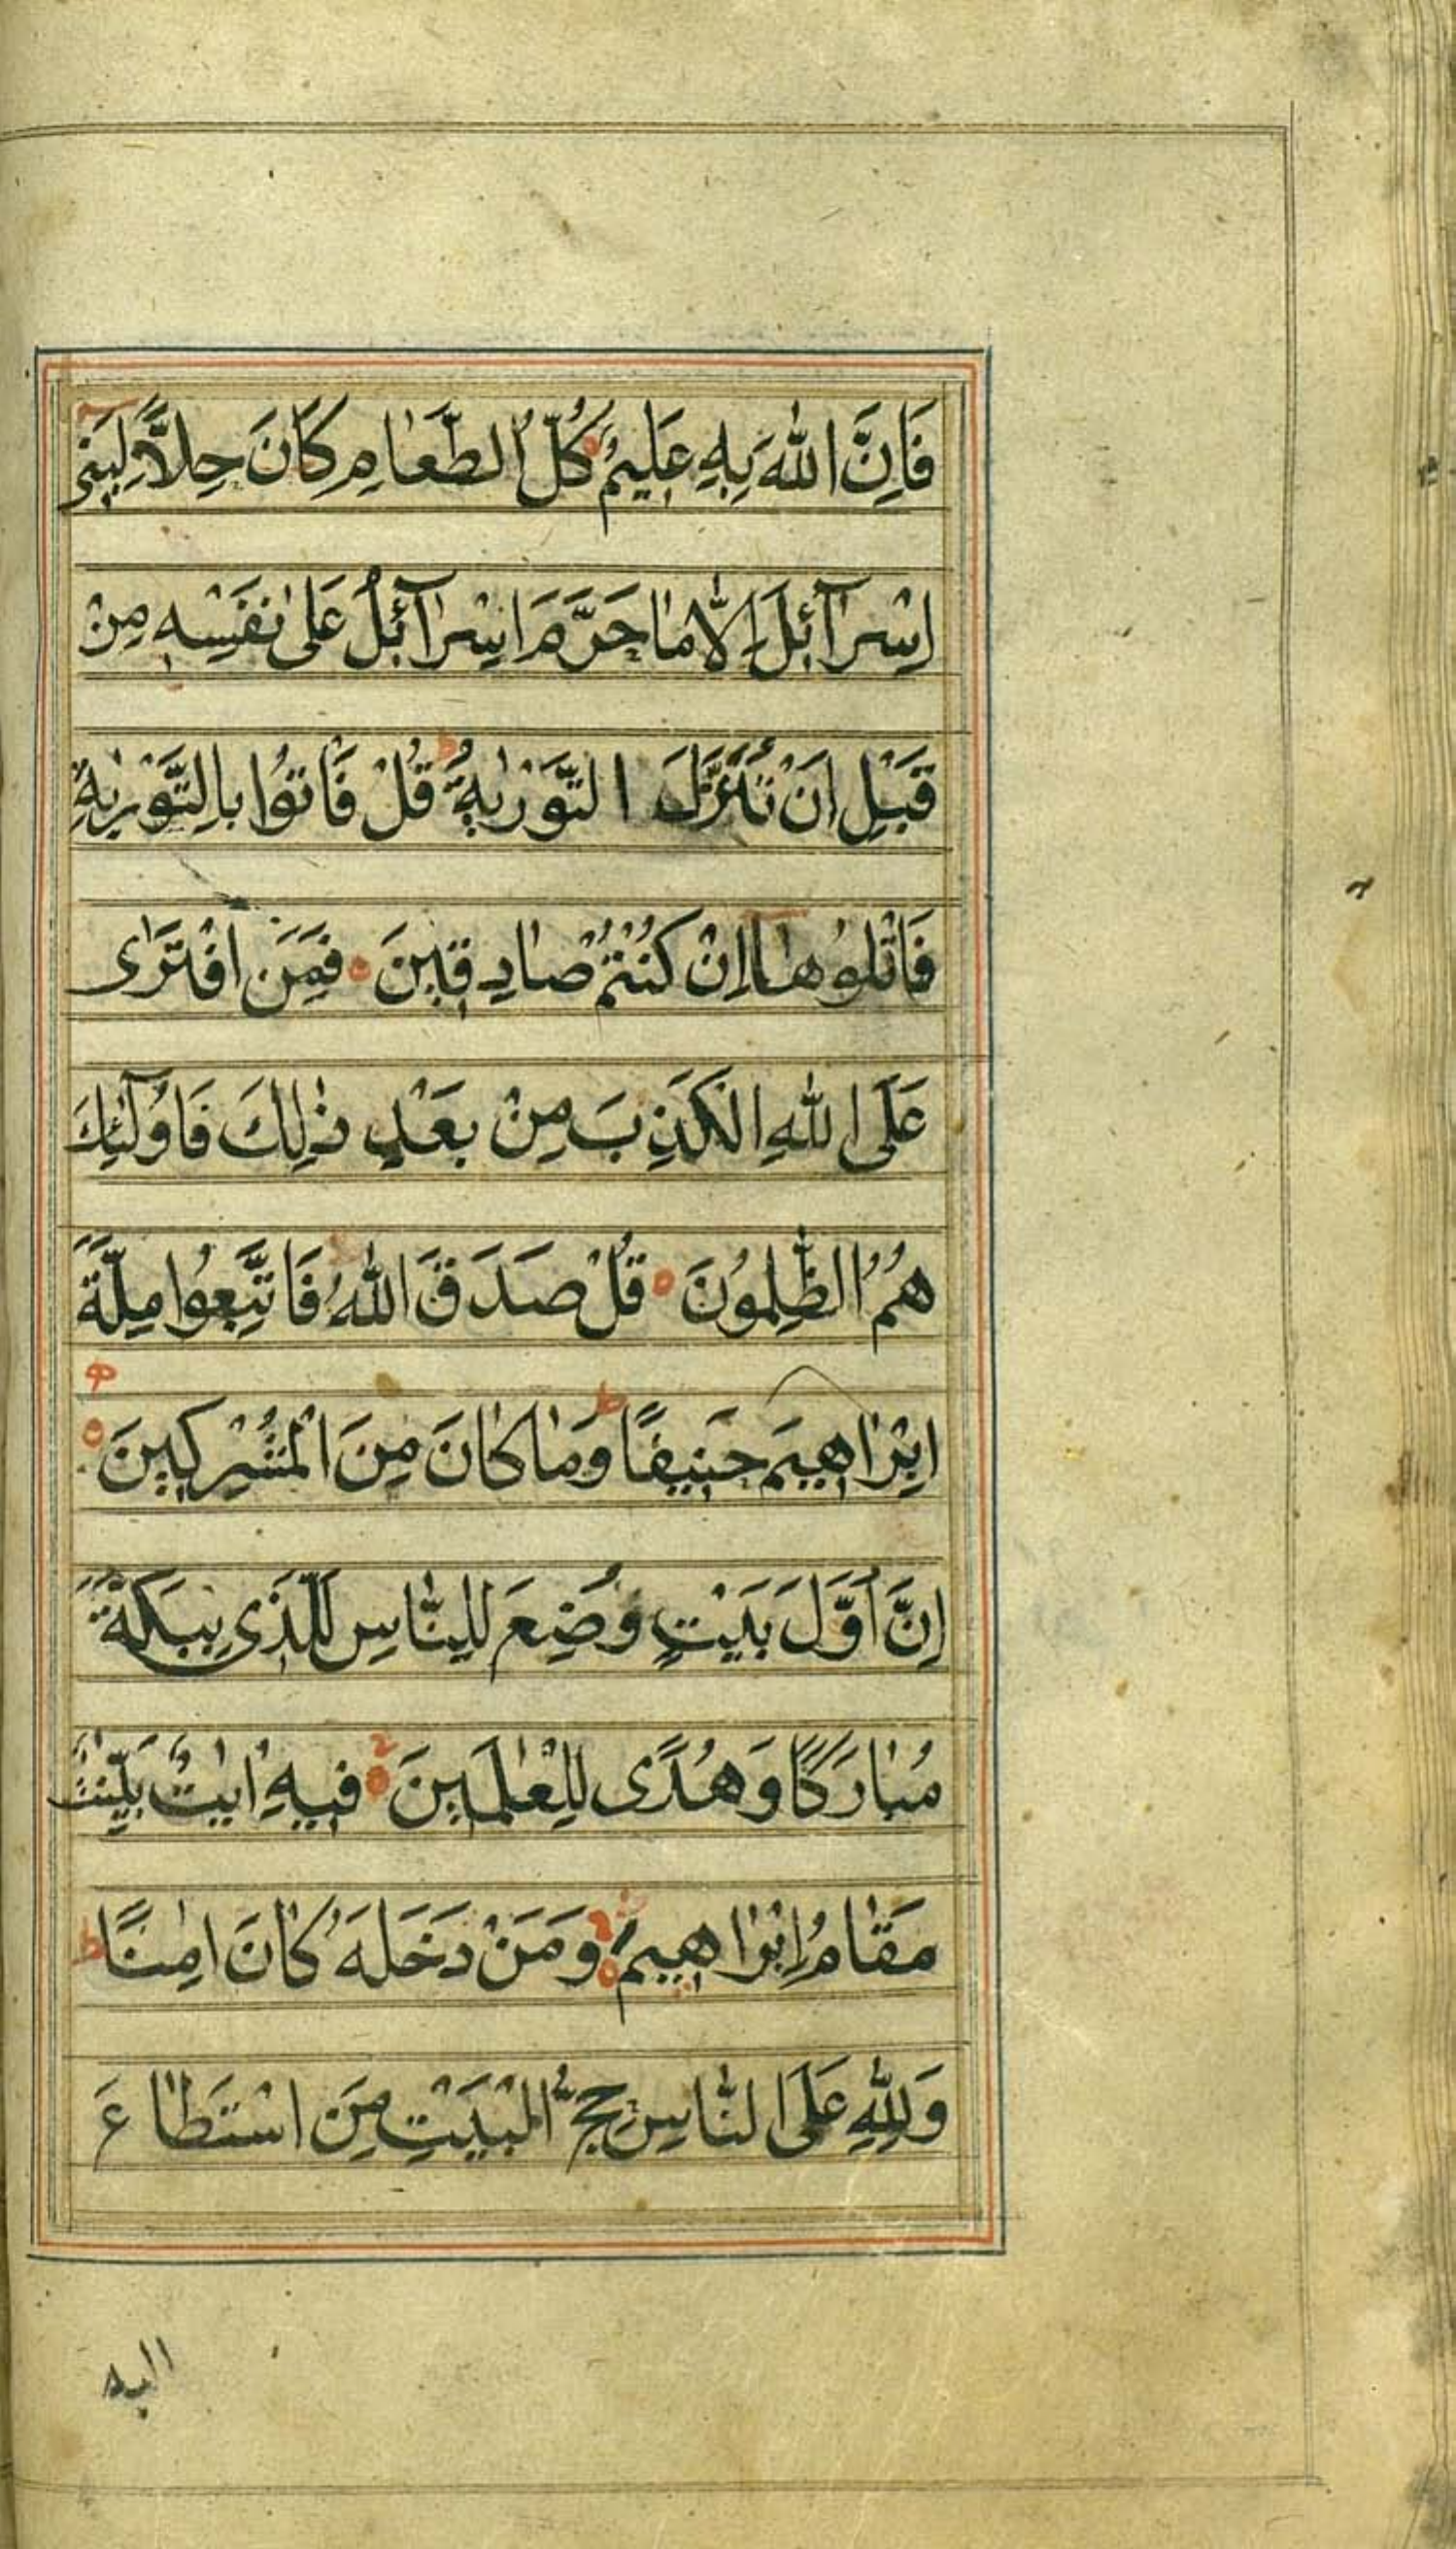 فَاِنَّ اللّٰهَ بِهٖ عَلِيْمٌ كُلُّ الطَّعَامِ كَانَ حِلًّا لِبَنِيْ
اِسْرَآئِلَ اِلَّا مَا حَرَّمَ اِسْرَآئِلُ عَلٰى نَفْسِهٖ مِنْ
قَبْلِ اَنْ تُنَزَّلَ التَّوْرٰىةُ ط قُلْ فَاْتُوْا بِالتَّوْرٰىةِ
فَاتْلُوْهَا اِنْ كُنْتُمْ صَادِقِيْنَ ه فَمَنِ افْتَرٰى
عَلَى اللّٰهِ الْكَذِبَ مِنْ بَعْدِ ذٰلِكَ فَاُولٰٓئِكَ
هُمُ الظّٰلِمُوْنَ ه قُلْ صَدَقَ اللّٰهُ فَاتَّبِعُوْا مِلَّةَ
اِبْرَاهِيْمَ حَنِيْفًا ط وَمَا كَانَ مِنَ الْمُشْرِكِيْنَ ه
اِنَّ اَوَّلَ بَيْتٍ وُضِعَ لِلنَّاسِ لَلَّذِى بِبَكَّةَ
مُبَارَكًا وَهُدًى لِلْعٰلَمِيْنَ ه فِيْهِ اٰيٰتٌ بَيِّنٰتٌ
مَقَامُ اِبْرَاهِيْمَ ه وَمَنْ دَخَلَهٗ كَانَ اٰمِنًا ط
وَلِلّٰهِ عَلَى النَّاسِ حِجُّ الْبَيْتِ مَنِ اسْتَطَاعَ
اليه